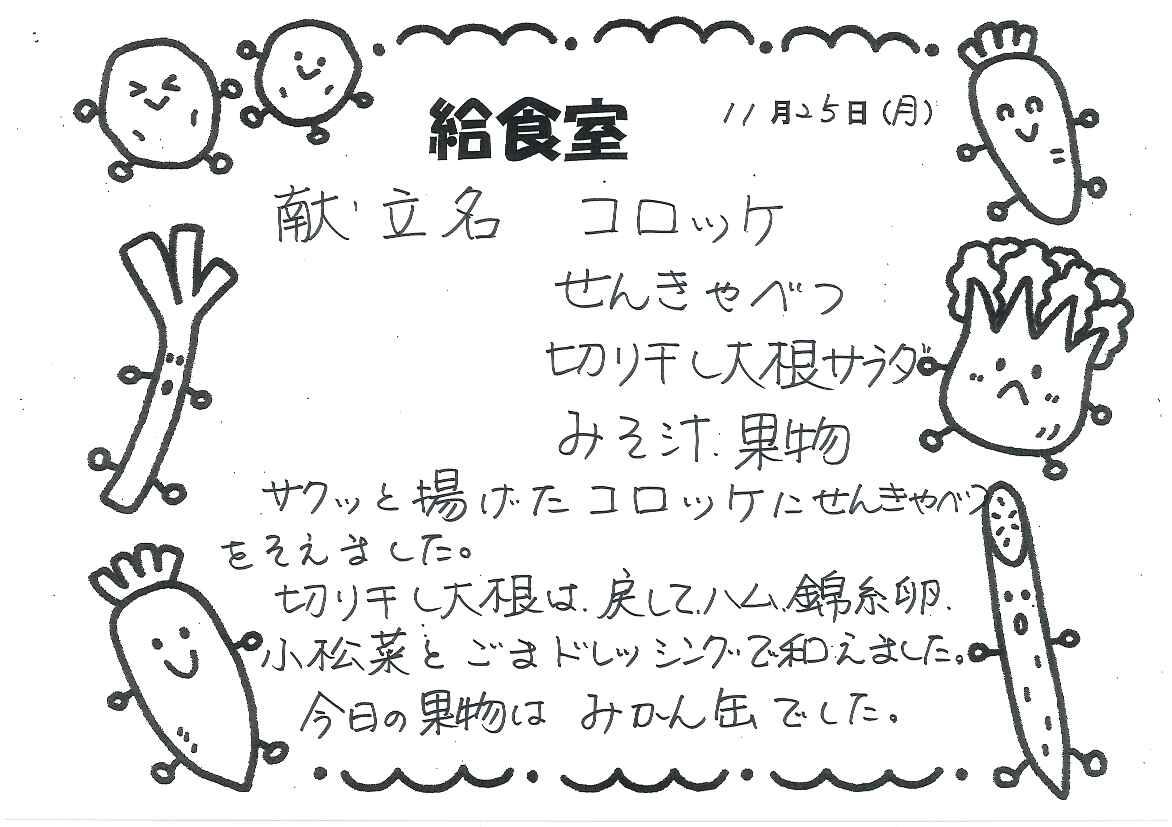 給食室 11月25日(月)
献立名 コロッケ
せんきゃべつ
切り干し大根サラダ
みそ汁.果物
サクッと揚げたコロッケにせんきゃべつ
をそえました。
切り干し大根は.戻して.ハム.錦糸卵.
小松菜とごまドレッシングで和えました。
今日の果物は みかん缶でした。